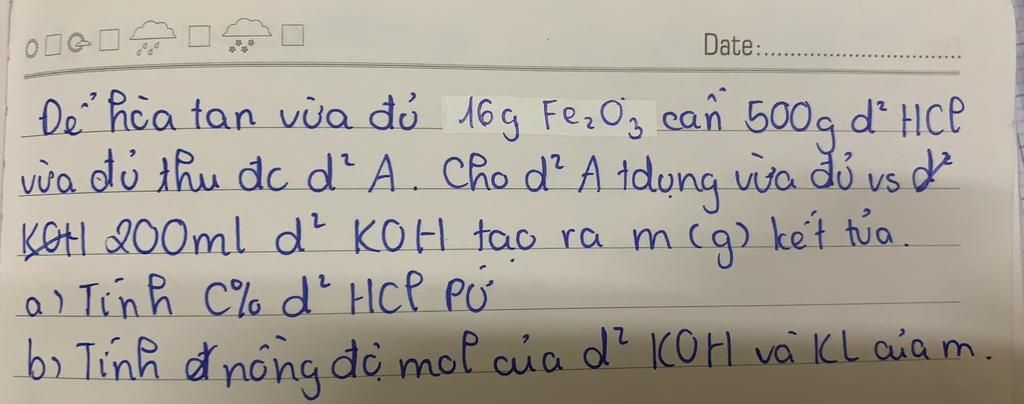 Date:
Để hòa tan vừa đủ 16g Fe₂O₃ cần 500g d² HCl
vừa đủ thu đc d² A. Cho d² A tdụng vừa đủ vs d²
KOH 200ml d² KOH tạo ra m (g) kết tủa.
a) Tính C% d² HCl PƯ
b) Tính nồng độ mol của d² KOH và KL của m.